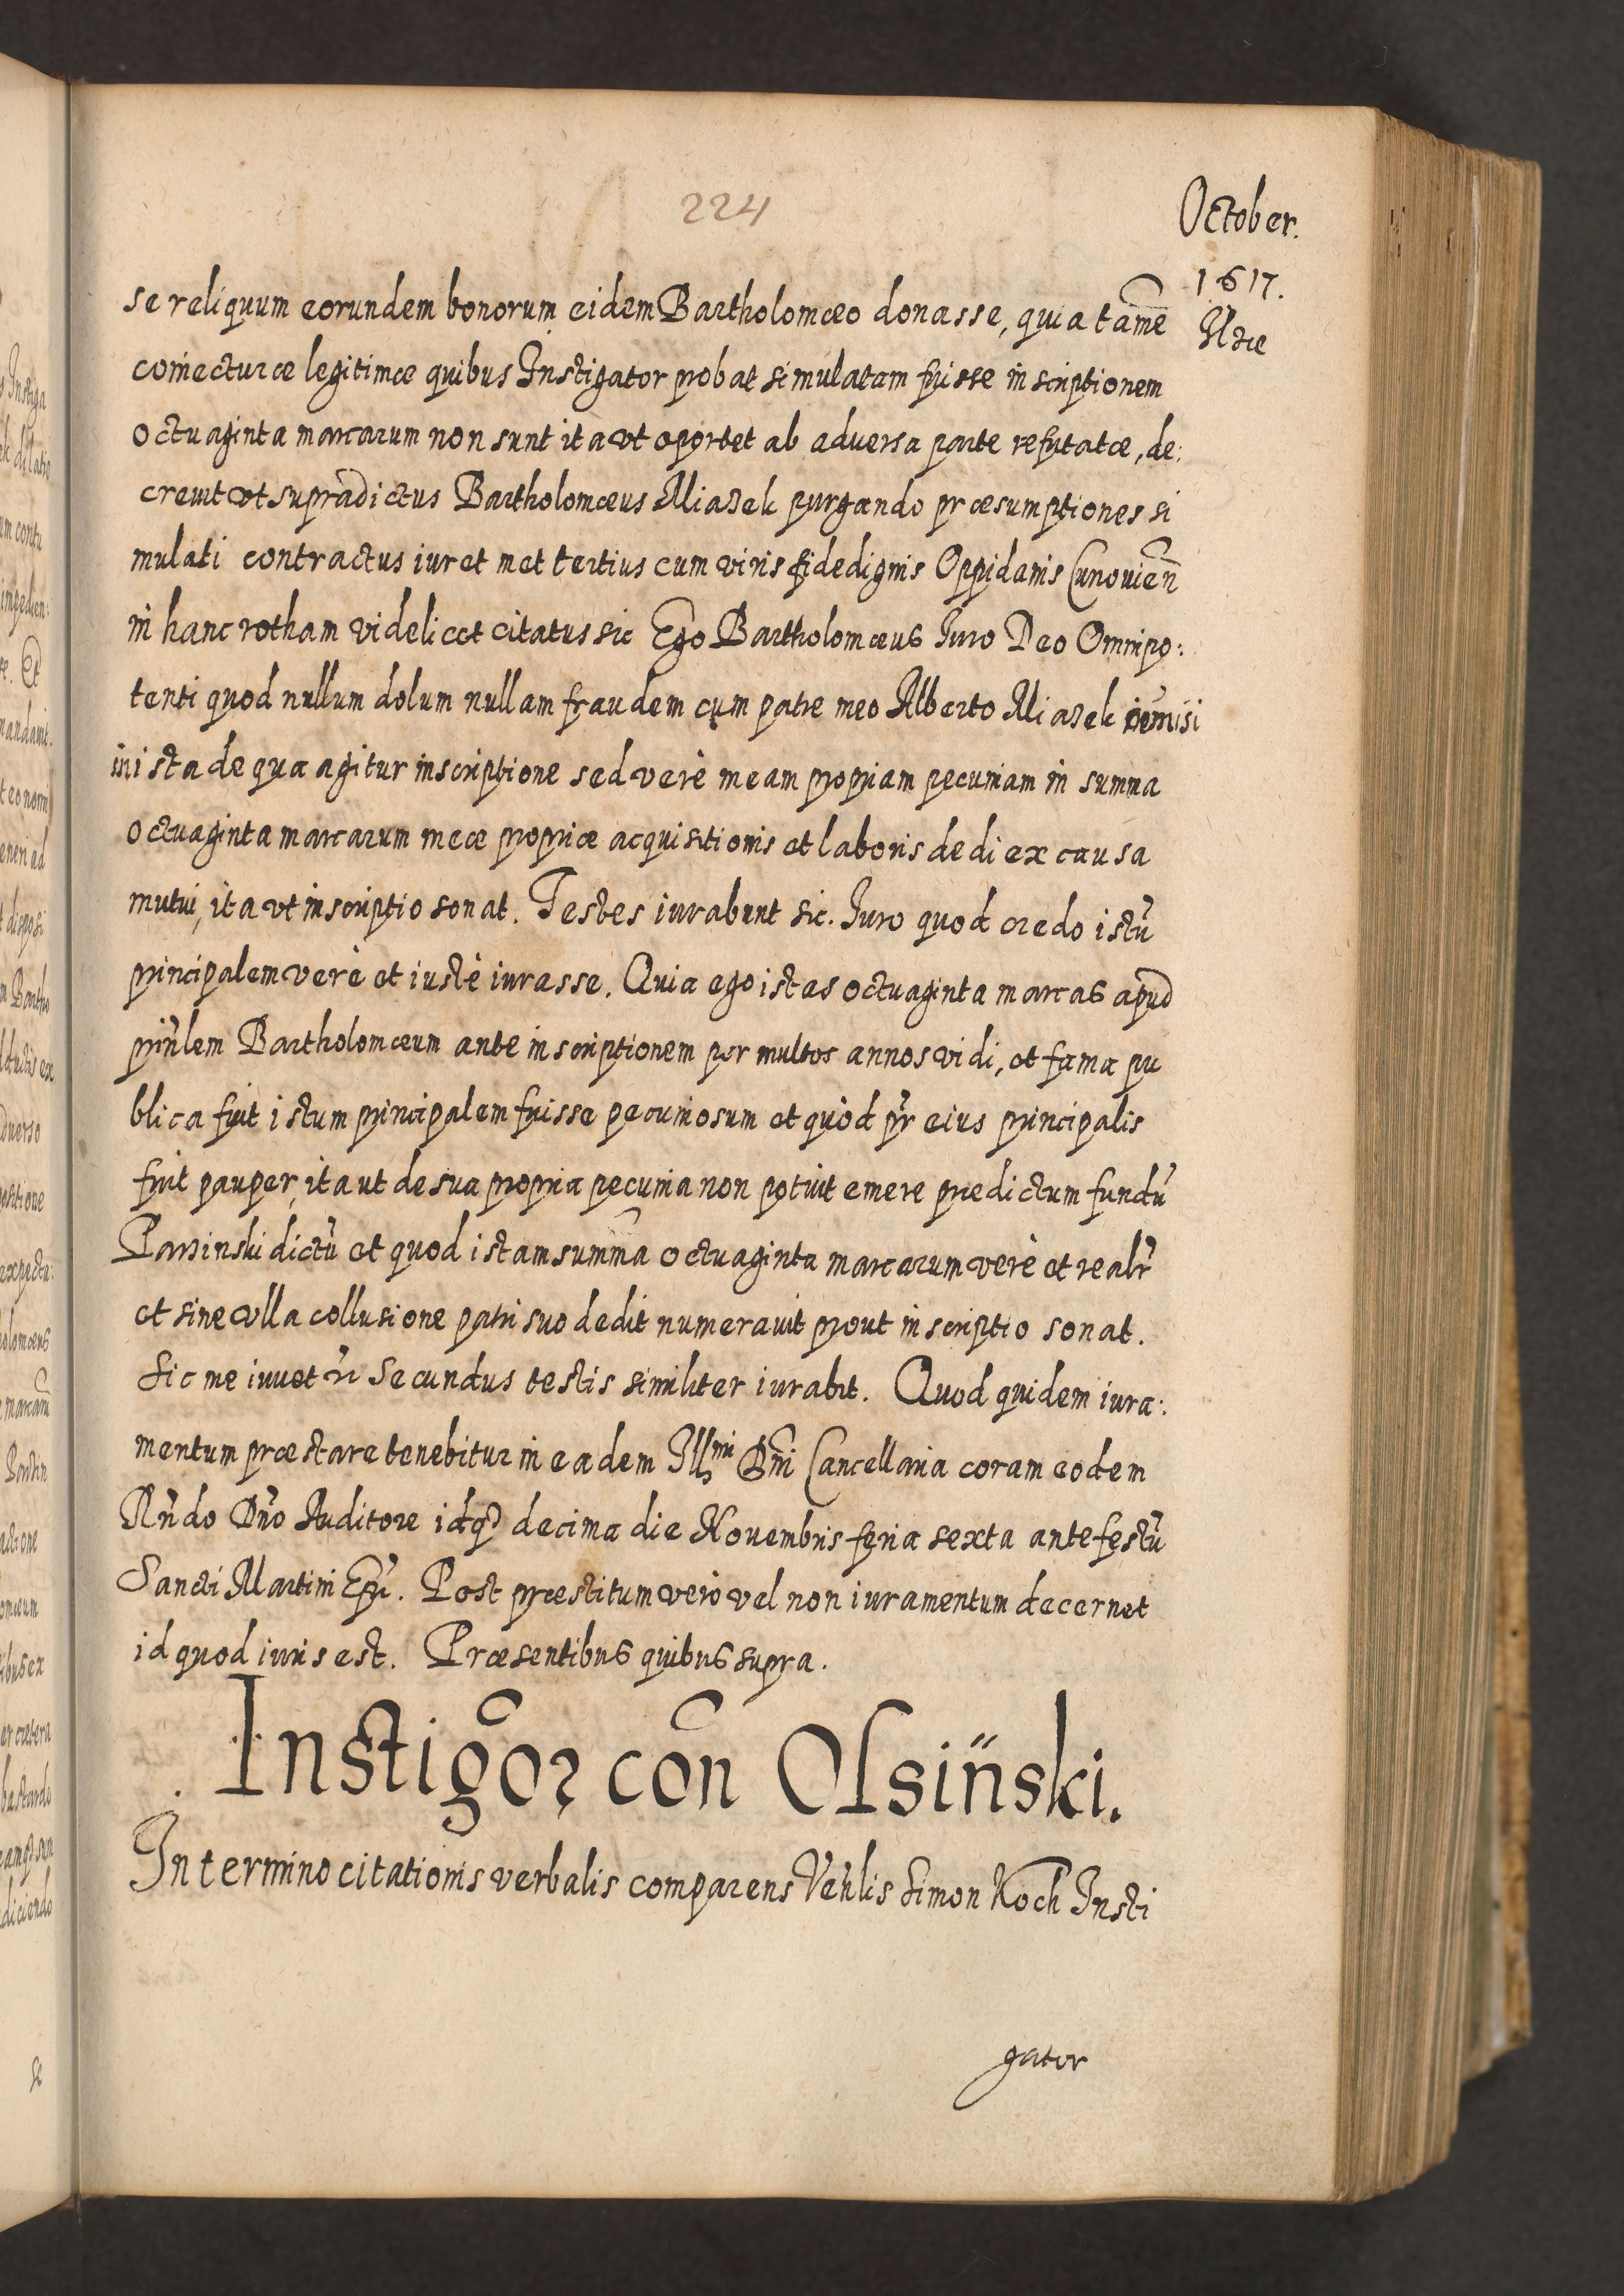 224
October.
1617.
se reliquum eorundem bonorum eidem Bartholomæo donasse, quia tamē
coniecturæ legitimæ quibus Instigator probat simulatam fuisse inscriptionem
octuaginta marcarum non sunt ita vt oportet ab adversa parte refutatæ, de:
crevit vt supradictus Bartholomæus Miazek purgando præsumptiones si
mulati contractus iuret met tertius cum viris fidedignis Oppidanis Cunovień
in hanc rotham videlicet citatus sic Ego Bartholomæus Iuro Deo Omnipo:
tenti quod nullum dolum nullam fraudem cum patre meo Alberto Miazek
in ista de qua agitur inscriptione sed verè meam propriam pecuniam in summa
octuaginta marcarum meæ propriæ acquisitionis et laboris dedi ex causa
mutui, ita vt inscriptio sonat. Testes iurabunt sic. Iuro quod credo istū
principalem verè et iustè iurasse. Quia ego istas octuaginta marcas apud
prinlem Bartholomæum ante inscriptionem per multos annos vidi, et fama pu
blica fuit istum principalem fuisse pecuniosum et quòd pr̃ eius principalis
fuit pauper, ita ut de sua propria pecunia non potuit emere prædictum fundū
Parsinski dictū et quod istam summā octuaginta marcarum verè et realr̃
et sine vlla collusione patri suo dedit numeravit prout inscriptio sonat.
Sic me iuvet Secundus testis similiter iurabit. Quod quidem iura:
mentum præstare tenebitur in eadem Illmi Dñi Cancellaria coram eodem
Rñdo Dño Auditore idq decima die Novembris feria sexta ante festū
Sancti Martini Epi. Post præstitum verò vel non iuramentum decernet
id quod iuris est. Præsentibus quibus supra.
Instigōr cōn Olsinski.
In termino citationis verbalis comparens Veñlis Simon Koch Insti
gator